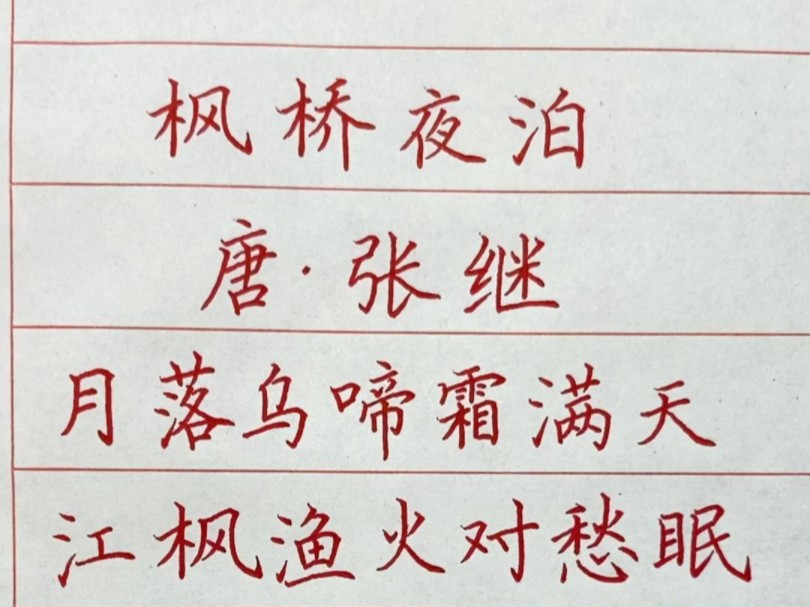 枫桥夜泊
唐·张继
月落乌啼霜满天
江枫渔火对愁眠